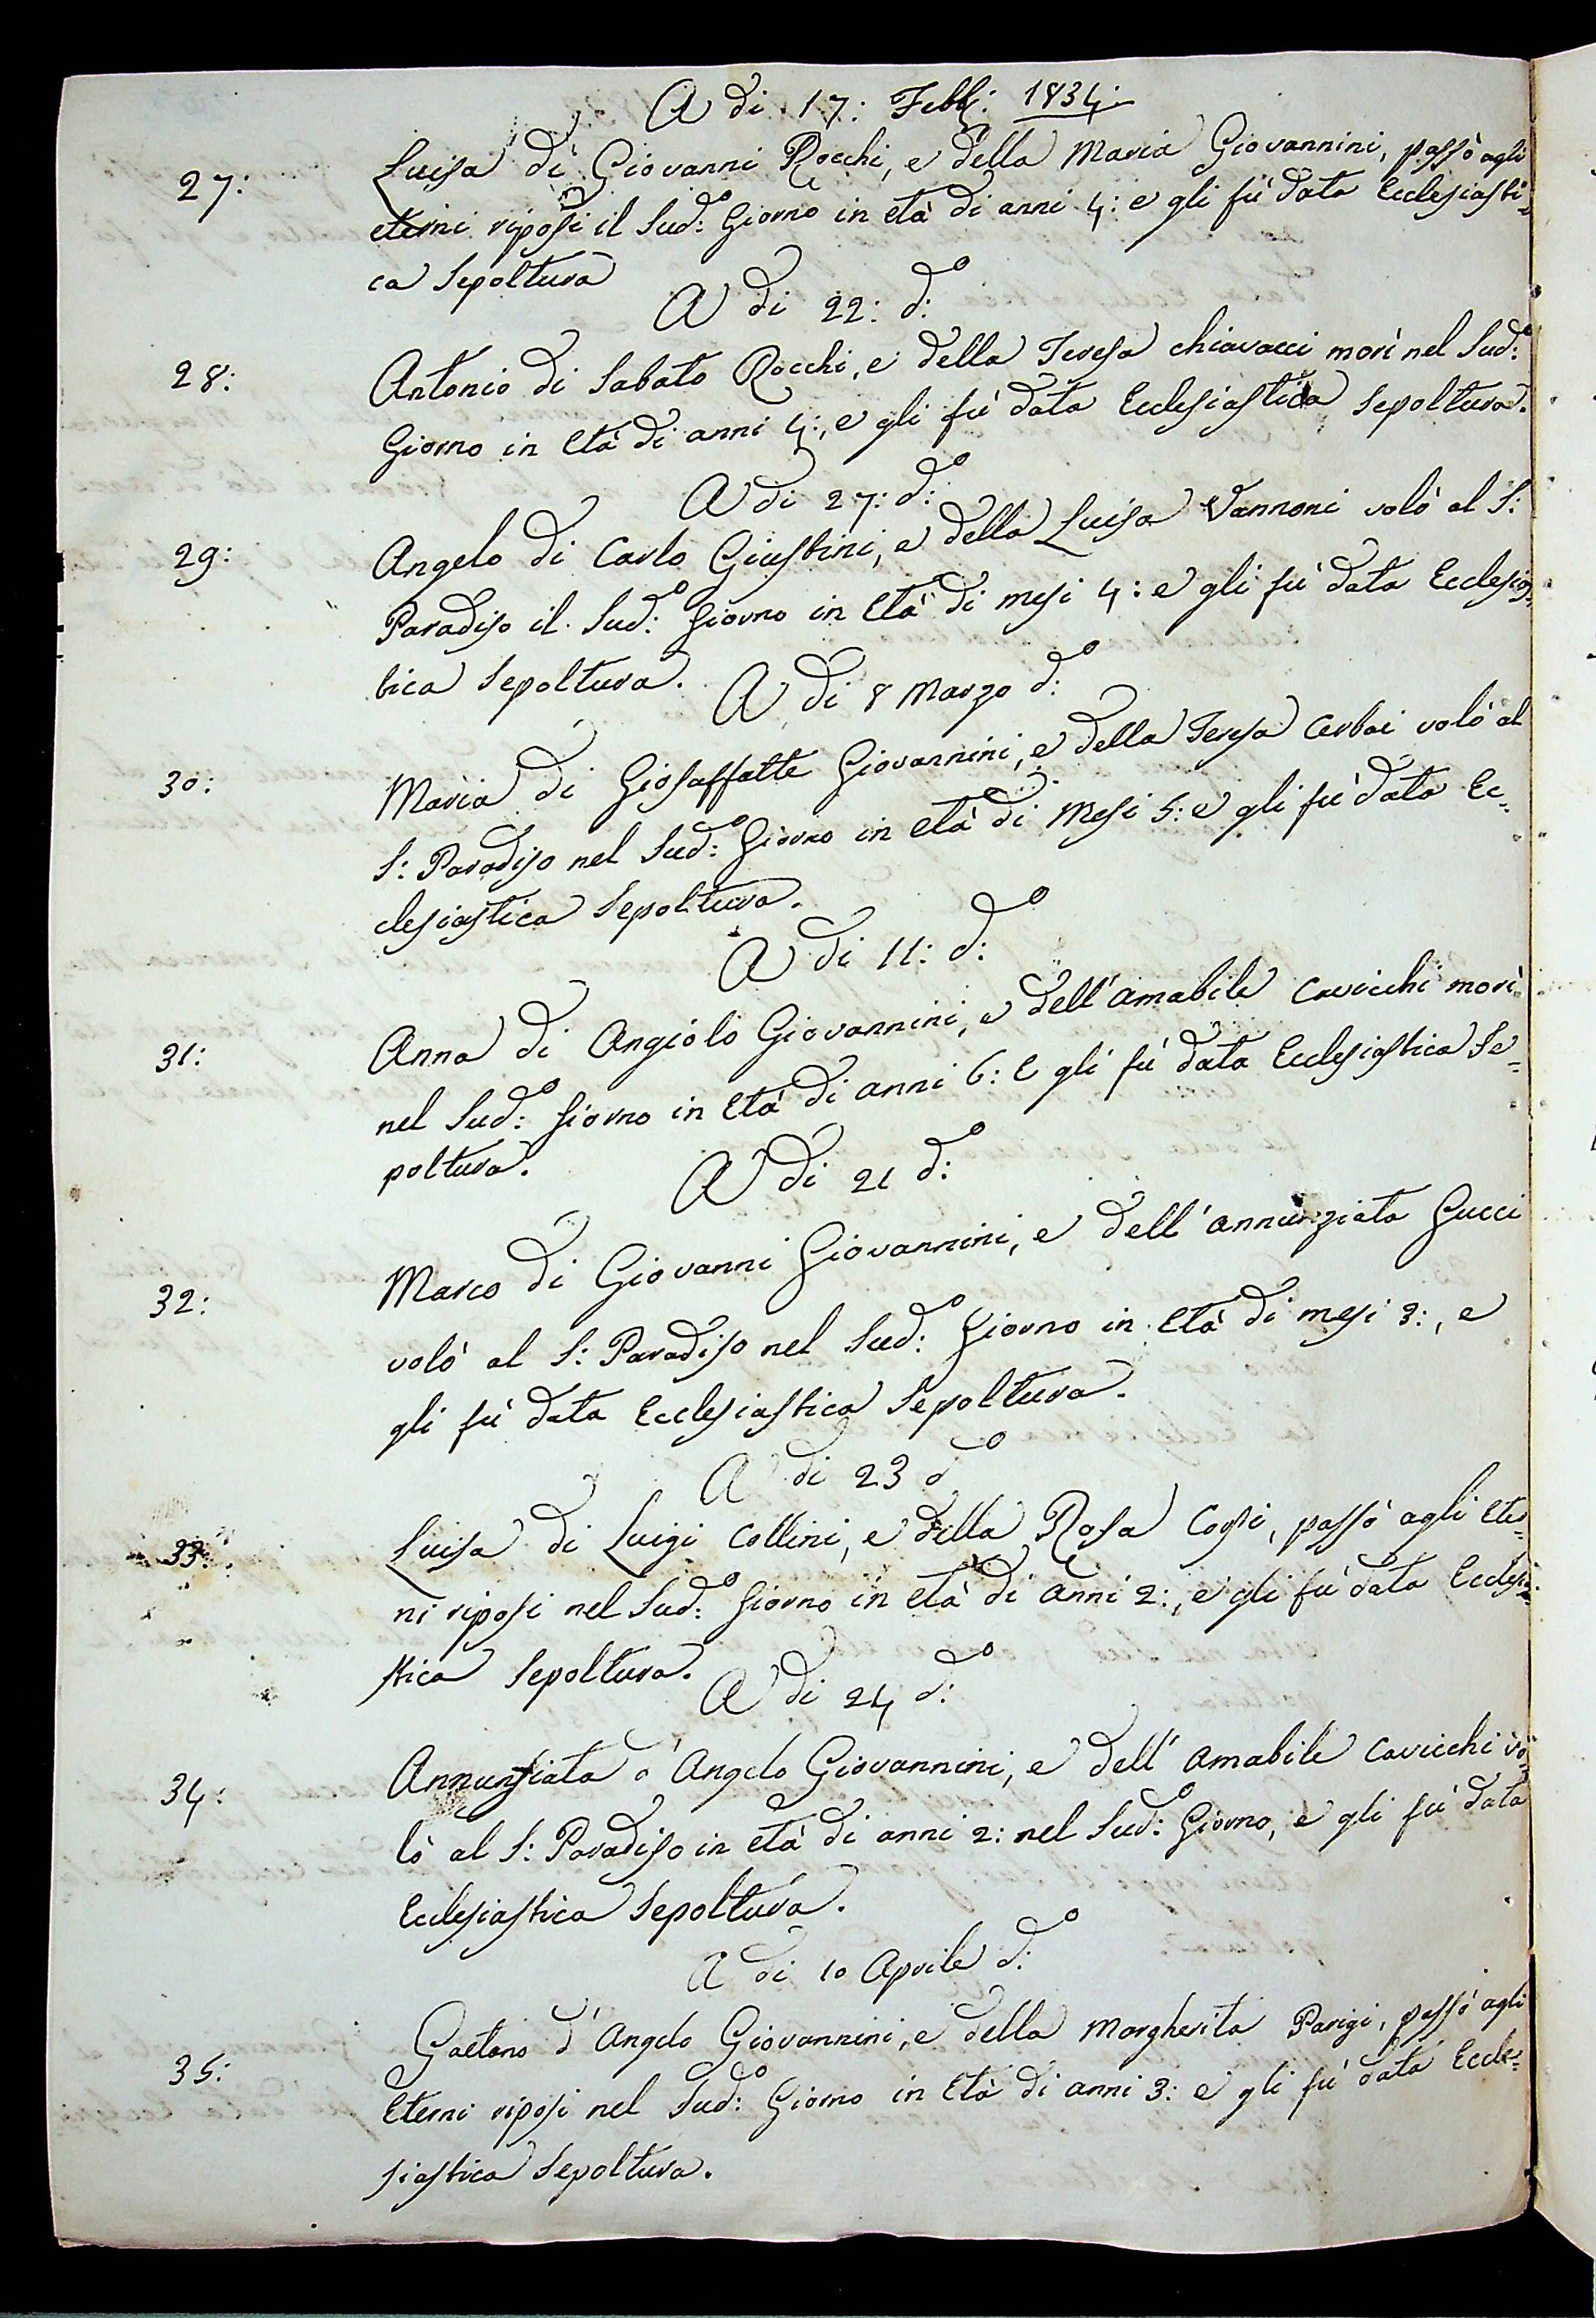 A di 17: Febb: 1834:
27: Luisa di Giovanni Rocchi, e della Maria Giovannini, passò agli
eterni riposi il Sud:o Giorno in età di anni 4: e gli fù data Ecclesiasti=
ca Sepoltura
A di 22: d:o
28: Antonio di Sabato Rocchi, e della Teresa chiavacci morì nel Sud:o
Giorno in Età di anni 4:, e gli fù data Ecclesiastica Sepoltura.
A di 27: d:o
29: Angelo di Carlo Giustini, e della Luisa Vannoni volò al S:
Paradiso il Sud:o Giorno in Età di mesi 4: e gli fù data Ecclesias=
tica Sepoltura.
A di 8 Marzo d:o
30: Maria di Giosaffatte Giovannini, e della Teresa Cerbai volò al
S: Paradiso nel Sud:o Giorno in età di Mesi 5: e gli fù data Ec=
clesiastica Sepoltura.
A di 11: d:o
31: Anna di Angiolo Giovannini, e dell'amabile Cavicchi morì
nel Sud:o Giorno in Età di anni 6: E gli fù data Ecclesiastica Se=
poltura.
A di 21 d:o
32: Marco di Giovanni Giovannini, e dell'annunziata Gucci
volò al S: Paradiso nel Sud:o Giorno in Età di mesi 3:, e
gli fù data Ecclesiastica Sepoltura.
A di 23 d:o
33: Luisa di Luigi Collini, e della Rosa passò agli Eter=
ni riposi nel Sud:o Giorno in età di anni 2:, e gli fù data Ecclesia=
stica Sepoltura.
A di 24 d:o
34: Annunziata d'Angelo Giovannini, e dell'amabile Cavicchi vo=
lò al S: Paradiso in età di anni 2: nel Sud:o Giorno, e gli fù data
Ecclesiastica Sepoltura.
A di 10 Aprile d:o
35: Gaetano d'Angelo Giovannini, e della Margherita Parigi, passò agli
Eterni riposi nel Sud:o Giorno in Età di anni 3: e gli fù data Eccle=
siastica Sepoltura.